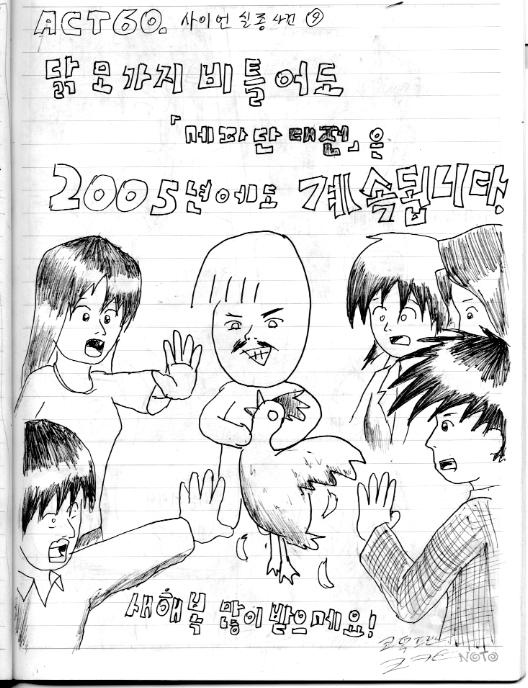 ACT60. 사이언 실종사건 ⑨
닭 모가지 비틀어도
「세라단대전」은
2005년에도 계속됩니다!
새해 복 많이 받으세요!
NOTO